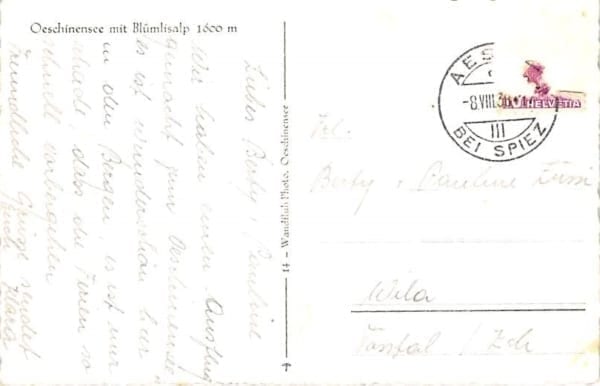 Oeschinensee mit Blümlisalp 1600 m
Liebes Berty, Pauline
Wir haben einen Ausflug
gemacht zum Oeschinensee
es ist wunderschön hier
in den Bergen, es ist nur
schade, dass die Ferien so
schnell vorbeigehen
Freundliche Grüsse sendet
Euch Klara
11 – Wandfluh Photo, Oeschinensee
AES
-8.VIII.3
III
BEI SPIEZ
HELVETIA
Berty, Pauline
Wila
Tösstal / Zch